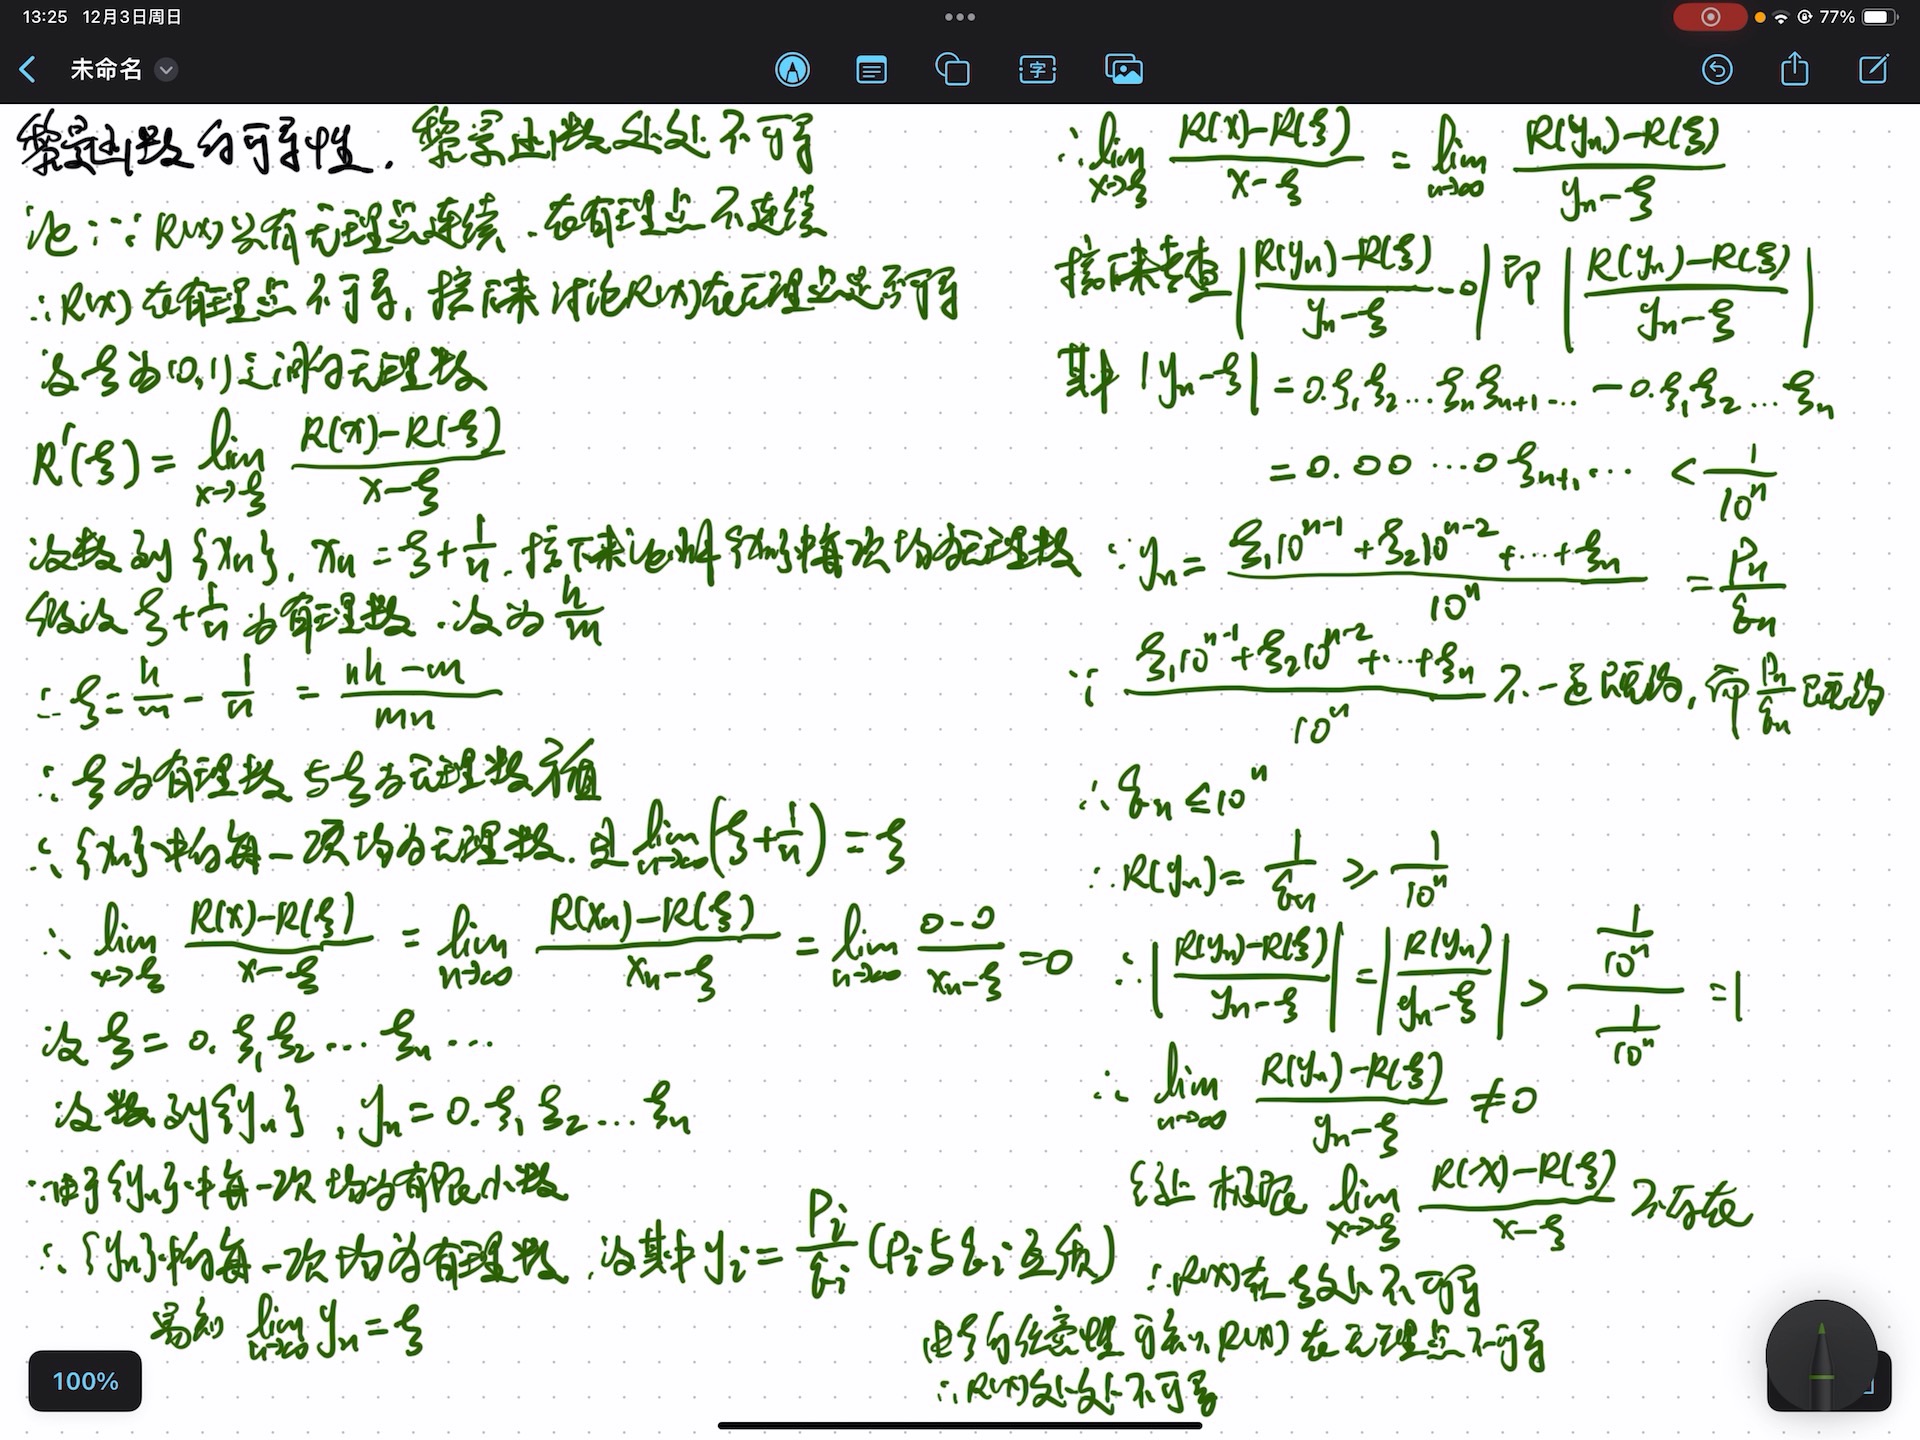 13:25 12月3日周日
77%
未命名
黎曼函数的可导性. 黎曼函数处处不可导
证:∵R(x)只有无理点连续.在有理点不连续
∴R(x)在有理点不可导,接下来讨论R(x)在无理点是否可导
设ξ为(0,1)之间的无理数
R'(ξ)=lim_{x→ξ} (R(x)-R(ξ))/(x-ξ)
设数列{xn}, xn=ξ+1/n.接下来证明{xn}中每项均为无理数
假设ξ+1/n为有理数.设为k/m
∴ξ=k/m-1/n=(nk-m)/(mn)
∴ξ为有理数与ξ为无理数矛盾
∴{xn}中的每一项均为无理数.且lim_{n→∞}(ξ+1/n)=ξ
∴lim_{x→ξ} (R(x)-R(ξ))/(x-ξ)=lim_{n→∞} (R(xn)-R(ξ))/(xn-ξ)=lim_{n→∞} (0-0)/(xn-ξ)=0
设ξ=0.ξ₁ξ₂…ξn…
设数列{yn},yn=0.ξ₁ξ₂…ξn
∵由于{yn}中每一项均为有限小数
∴{yn}中的每一项均为有理数.设其中yi=Pi/qi(Pi与qi互质)
易知 lim_{n→∞} yn=ξ
∴lim_{x→ξ} (R(x)-R(ξ))/(x-ξ)=lim_{n→∞} (R(yn)-R(ξ))/(yn-ξ)
接下来考查|(R(yn)-R(ξ))/(yn-ξ)-0|即|(R(yn)-R(ξ))/(yn-ξ)|
其中|yn-ξ|=0.ξ₁ξ₂…ξnξn+1…-0.ξ₁ξ₂…ξn
=0.00…0ξn+1…<1/10ⁿ
∵yn=(ξ₁10ⁿ⁻¹+ξ₂10ⁿ⁻²+…+ξn)/10ⁿ=Pn/qn
∵(ξ₁10ⁿ⁻¹+ξ₂10ⁿ⁻²+…+ξn)/10ⁿ不一定既约,而Pn/qn既约
∴qn≤10ⁿ
∴R(yn)=1/qn≥1/10ⁿ
∴|(R(yn)-R(ξ))/(yn-ξ)|=|R(yn)/(yn-ξ)|>(1/10ⁿ)/(1/10ⁿ)=1
∴lim_{n→∞} (R(yn)-R(ξ))/(yn-ξ)≠0
综上极限lim_{x→ξ} (R(x)-R(ξ))/(x-ξ)不存在
∴R(x)在ξ处不可导
由ξ的任意性可知R(x)在无理点不可导
∴R(x)处处不可导
100%